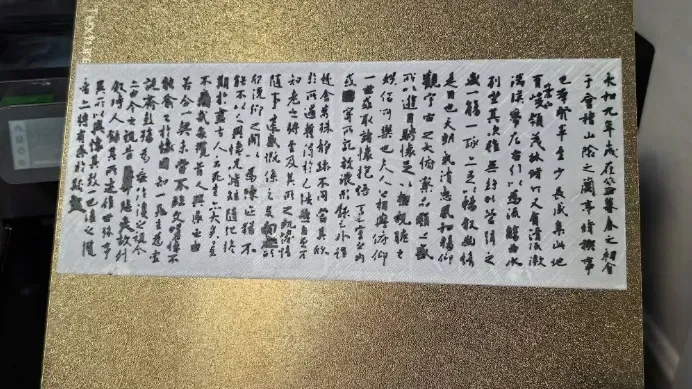 永和九年歲在癸丑暮春之初會
于會稽山陰之蘭亭脩稧事
也羣賢畢至少長咸集此地
有崇山峻領茂林脩竹又有清流激
湍暎帶左右引以為流觴曲水
列坐其次雖無絲竹管弦之
盛一觴一詠亦足以暢敘幽情
是日也天朗氣清惠風和暢仰
觀宇宙之大俯察品類之盛
所以遊目騁懷足以極視聽之
娛信可樂也夫人之相與俯仰
一世或取諸懷抱悟言一室之內
或因寄所託放浪形骸之外雖
趣舍萬殊靜躁不同當其欣
於所遇蹔得於己快然自足不
知老之將至及其所之既惓情
隨事遷感慨係之矣向之所欣
俛仰之閒以為陳迹猶不
能不以之興懷況脩短隨化終
期於盡古人云死生亦大矣豈
不痛哉每攬昔人興感之由
若合一契未嘗不臨文嗟悼不
能喻之於懷固知一死生為虛
誕齊彭殤為妄作後之視今
亦由今之視昔悲夫故列
敘時人錄其所述雖世殊事
異所以興懷其致一也後之攬
者亦將有感於斯文